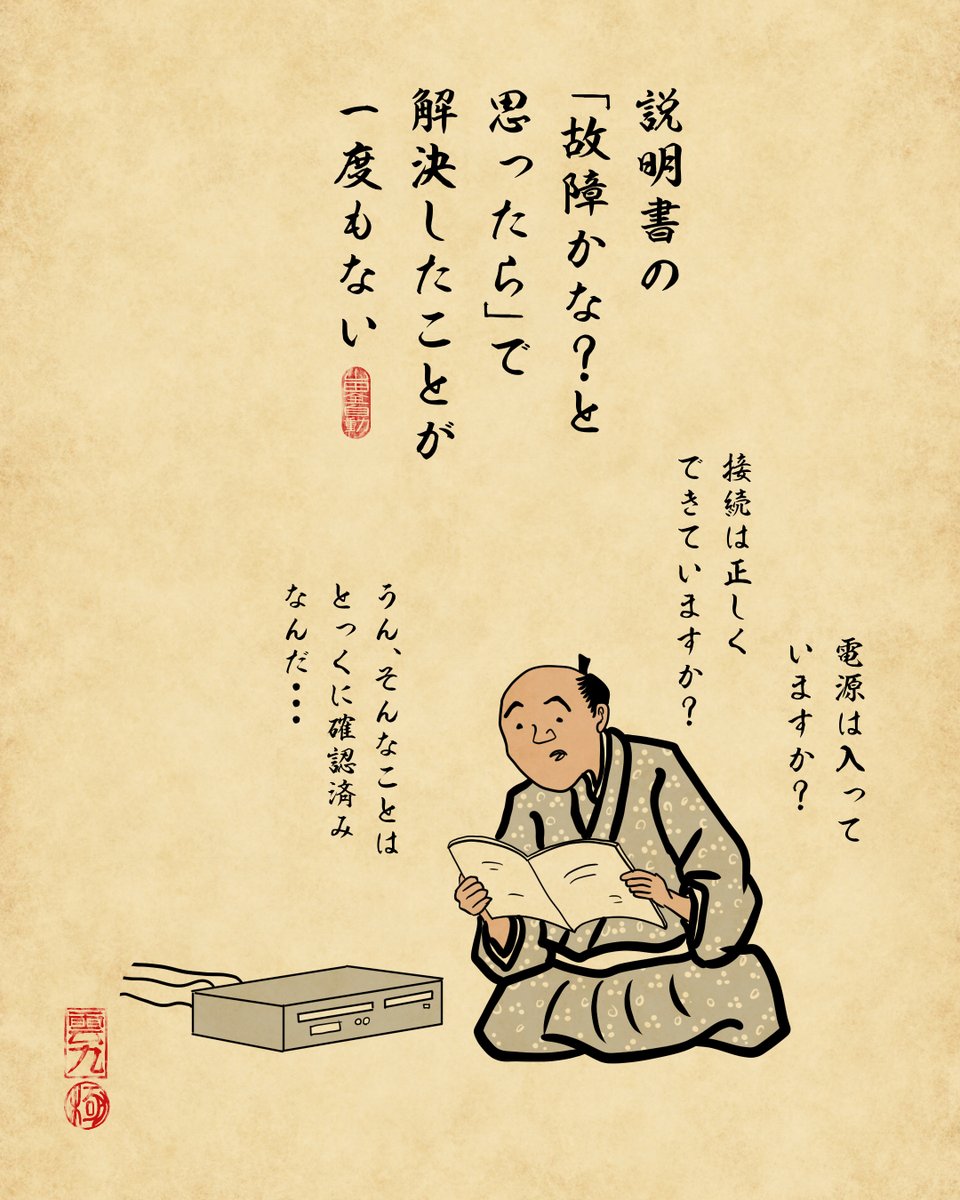 説明書の
「故障かな？と
思ったら」で
解決したことが
一度もない
電源は入って
いますか？
接続は正しく
できていますか？
うん、そんなことは
とっくに確認済み
なんだ・・・